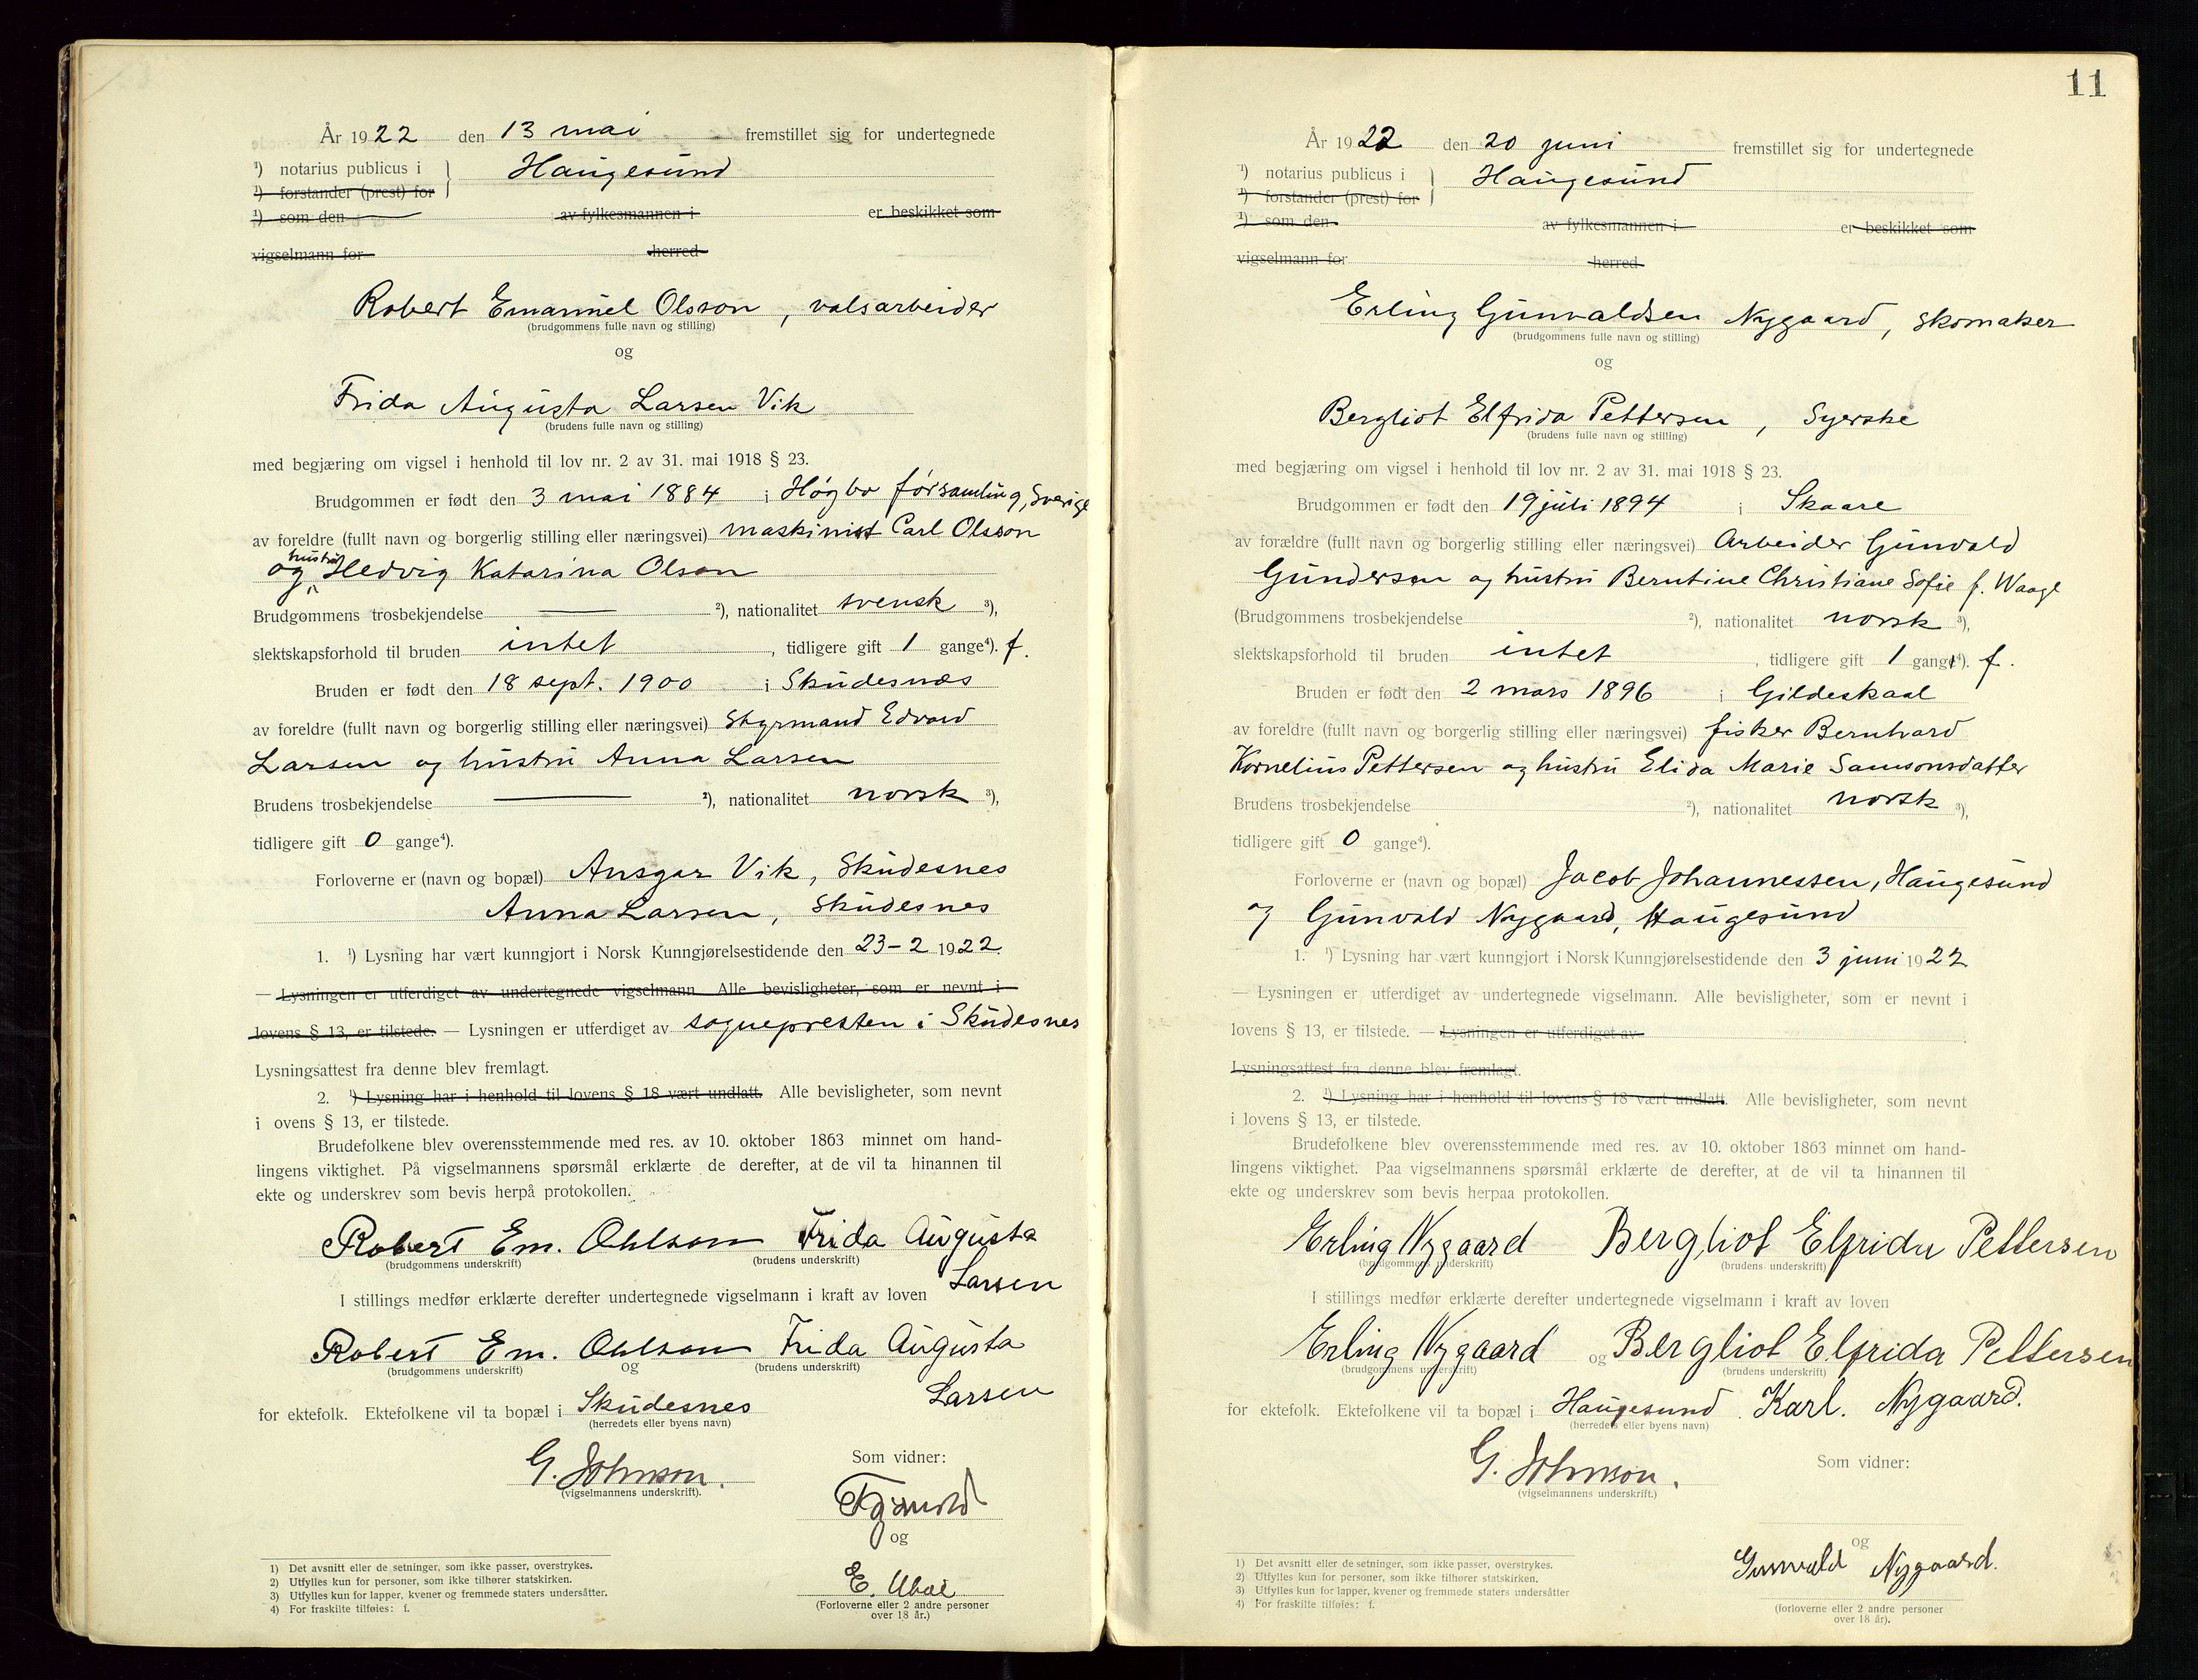 År 1922 den 13 mai fremstillet sig for undertegnede
¹) notarius publicus i } Haugesund
¹) forstander (prest) for
¹) som den av fylkesmannen i er beskikket som
vigselmann for herred
Robert Emanuel Olsson, valsarbeider
(brudgommens fulle navn og stilling)
og
Frida Augusta Larsen Vik
(brudens fulle navn og stilling)
med begjæring om vigsel i henhold til lov nr. 2 av 31. mai 1918 § 23.
Brudgommen er født den 3 mai 1884 i Høgbo församling, Sverige
av foreldre (fullt navn og borgerlig stilling eller næringsvei) maskinist Carl Olsson
og hustru Hedvig Katarina Olson
Brudgommens trosbekjendelse — ²), nationalitet svensk ³),
slektskapsforhold til bruden intet, tidligere gift 1 gange⁴). f.
Bruden er født den 18 sept. 1900 i Skudesnæs
av foreldre (fullt navn og borgerlig stilling eller næringsvei) Styrmand Edvard
Larsen og hustru Anna Larsen
Brudens trosbekjendelse — ²), nationalitet norsk ³),
tidligere gift 0 gange⁴).
Forloverne er (navn og bopæl) Ansgar Vik, Skudesnes
Anna Larsen, Skudesnes
1. ¹) Lysning har vært kunngjort i Norsk Kunngjørelsestidende den 23-2 1922.
— Lysningen er utferdiget av undertegnede vigselmann. Alle bevisligheter, som er nevnt i
lovens § 13, er tilstede. — Lysningen er utferdiget av sognepresten i Skudesnes
Lysningsattest fra denne blev fremlagt.
2. ¹) Lysning har i henhold til lovens § 18 vært undlatt. Alle bevisligheter, som nevnt
i ovens § 13, er tilstede.
Brudefolkene blev overensstemmende med res. av 10. oktober 1863 minnet om hand-
lingens viktighet. På vigselmannens spørsmål erklærte de derefter, at de vil ta hinannen til
ekte og underskrev som bevis herpå protokollen.
Robert Em. Ohlson Frida Augusta
(brudgommens underskrift) (brudens underskrift)
Larsen
I stillings medfør erklærte derefter undertegnede vigselmann i kraft av loven
Robert Em. Ohlson Frida Augusta
(brudgommens underskrift) og (brudens underskrift)
Larsen
for ektefolk. Ektefolkene vil ta bopæl i Skudesnes
(herredets eller byens navn)
G. Johnson.
(vigselmannens underskrift).
Som vidner:
og
E.
(Forloverne eller 2 andre personer
over 18 år.)
1) Det avsnitt eller de setninger, som ikke passer, overstrykes.
2) Utfylles kun for personer, som ikke tilhører statskirken.
3) Utfylles kun for lapper, kvener og fremmede staters undersåtter.
4) For fraskilte tilføies: f.
11
År 1922 den 20 juni fremstillet sig for undertegnede
¹) notarius publicus i } Haugesund
¹) forstander (prest) for
¹) som den av fylkesmannen i er beskikket som
vigselmann for herred
Erling Gunvaldsen Nygaard, Skomaker
(brudgommens fulle navn og stilling)
og
Bergliot Elfrida Pettersen, Syerske
(brudens fulle navn og stilling)
med begjæring om vigsel i henhold til lov nr. 2 av 31. mai 1918 § 23.
Brudgommen er født den 19 juli 1894 i Skaare
av forældre (fullt navn og borgerlig stilling eller næringsvei) Arbeider Gunvald
Gundersen og hustru Berntine Christiane Sofie f. Waage
(Brudgommens trosbekjendelse ²), nationalitet norsk ³),
slektskapsforhold til bruden intet, tidligere gift 1 gange⁴). f.
Bruden er født den 2 mars 1896 i Gildeskaal
av foreldre (fullt navn og borgerlig stilling eller næringsvei) fisker Bernhard
Kornelius Pettersen og hustru Elida Marie Samsonsdatter
Brudens trosbekjendelse ²), nationalitet norsk ³),
tidligere gift 0 gange⁴).
Forloverne er (navn og bopæl) Jacob Johannessen, Haugesund
og Gunvald Nygaard, Haugesund
1. ¹) Lysning har vært kunngjort i Norsk Kunngjørelsestidende den 3 juni 1922
— Lysningen er utferdiget av undertegnede vigselmann. Alle bevisligheter, som er nevnt i
lovens § 13, er tilstede. — Lysningen er utferdiget av
Lysningsattest fra denne blev fremlagt.
2. ¹) Lysning har i henhold til lovens § 18 vært undlatt. Alle bevisligheter, som nevnt
i lovens § 13, er tilstede.
Brudefolkene blev overensstemmende med res. av 10. oktober 1863 minnet om hand-
lingens viktighet. Paa vigselmannens spørsmål erklærte de derefter, at de vil ta hinannen til
ekte og underskrev som bevis herpaa protokollen.
Erling Nygaard Bergliot Elfrida Pettersen
(brudgommens underskrift) (brudens underskrift)
I stillings medfør erklærte derefter undertegnede vigselmann i kraft av loven
Erling Nygaard og Bergliot Elfrida Pettersen
(brudgommens underskrift) (brudens underskrift)
for ektefolk. Ektefolkene vil ta bopæl i Haugesund. Karl. Nygaard.
(herredets eller byens navn)
G. Johnson.
(vigselmannens underskrift.)
Som vidner:
og
Gunvald Nygaard.
(forloverne eller 2 andre personer
over 18 år).
1) Det avsnitt eller de setninger, som ikke passer, overstrykes.
2) Utfylles kun for personer, som ikke tilhører statskirken.
3) Utfylles kun for lapper, kvener og fremmede staters undersåtter
4) For fraskilte tilføies: f.